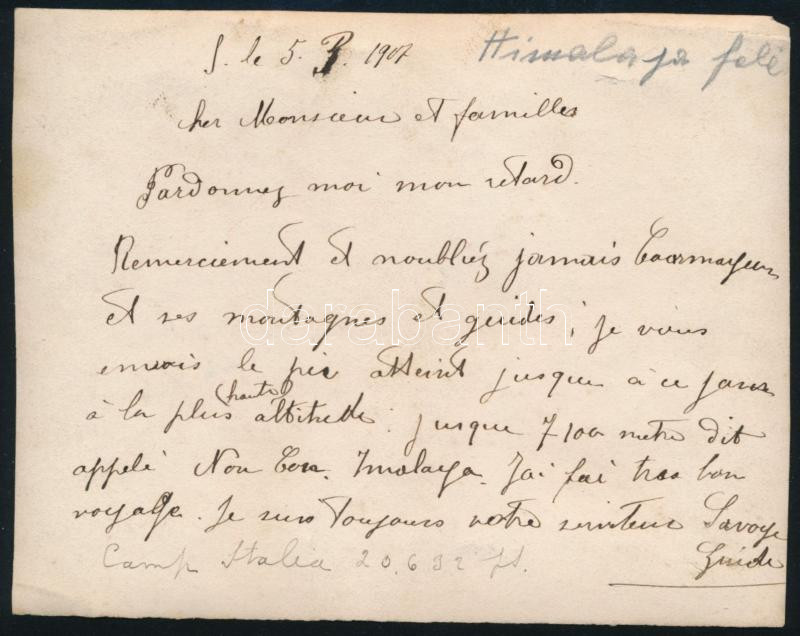 S. le 5. 3. 1907
Himalaja felé
cher Monsieur et familles
Pardonnez moi mon retard.
Remerciement et noubliéz jamais Coormayeur
et ses montagnes et guides; je vous
envois le pic atteint jusque à ce jour
à la plus haute altitude. jusque 7100 metre dit
appelé Non Con. Imalaya. J'ai fai tres bon
voyage. Je suis toujours votre serviteur Savoye
Guide
Camp Italia 20.632 ft.
darabanth